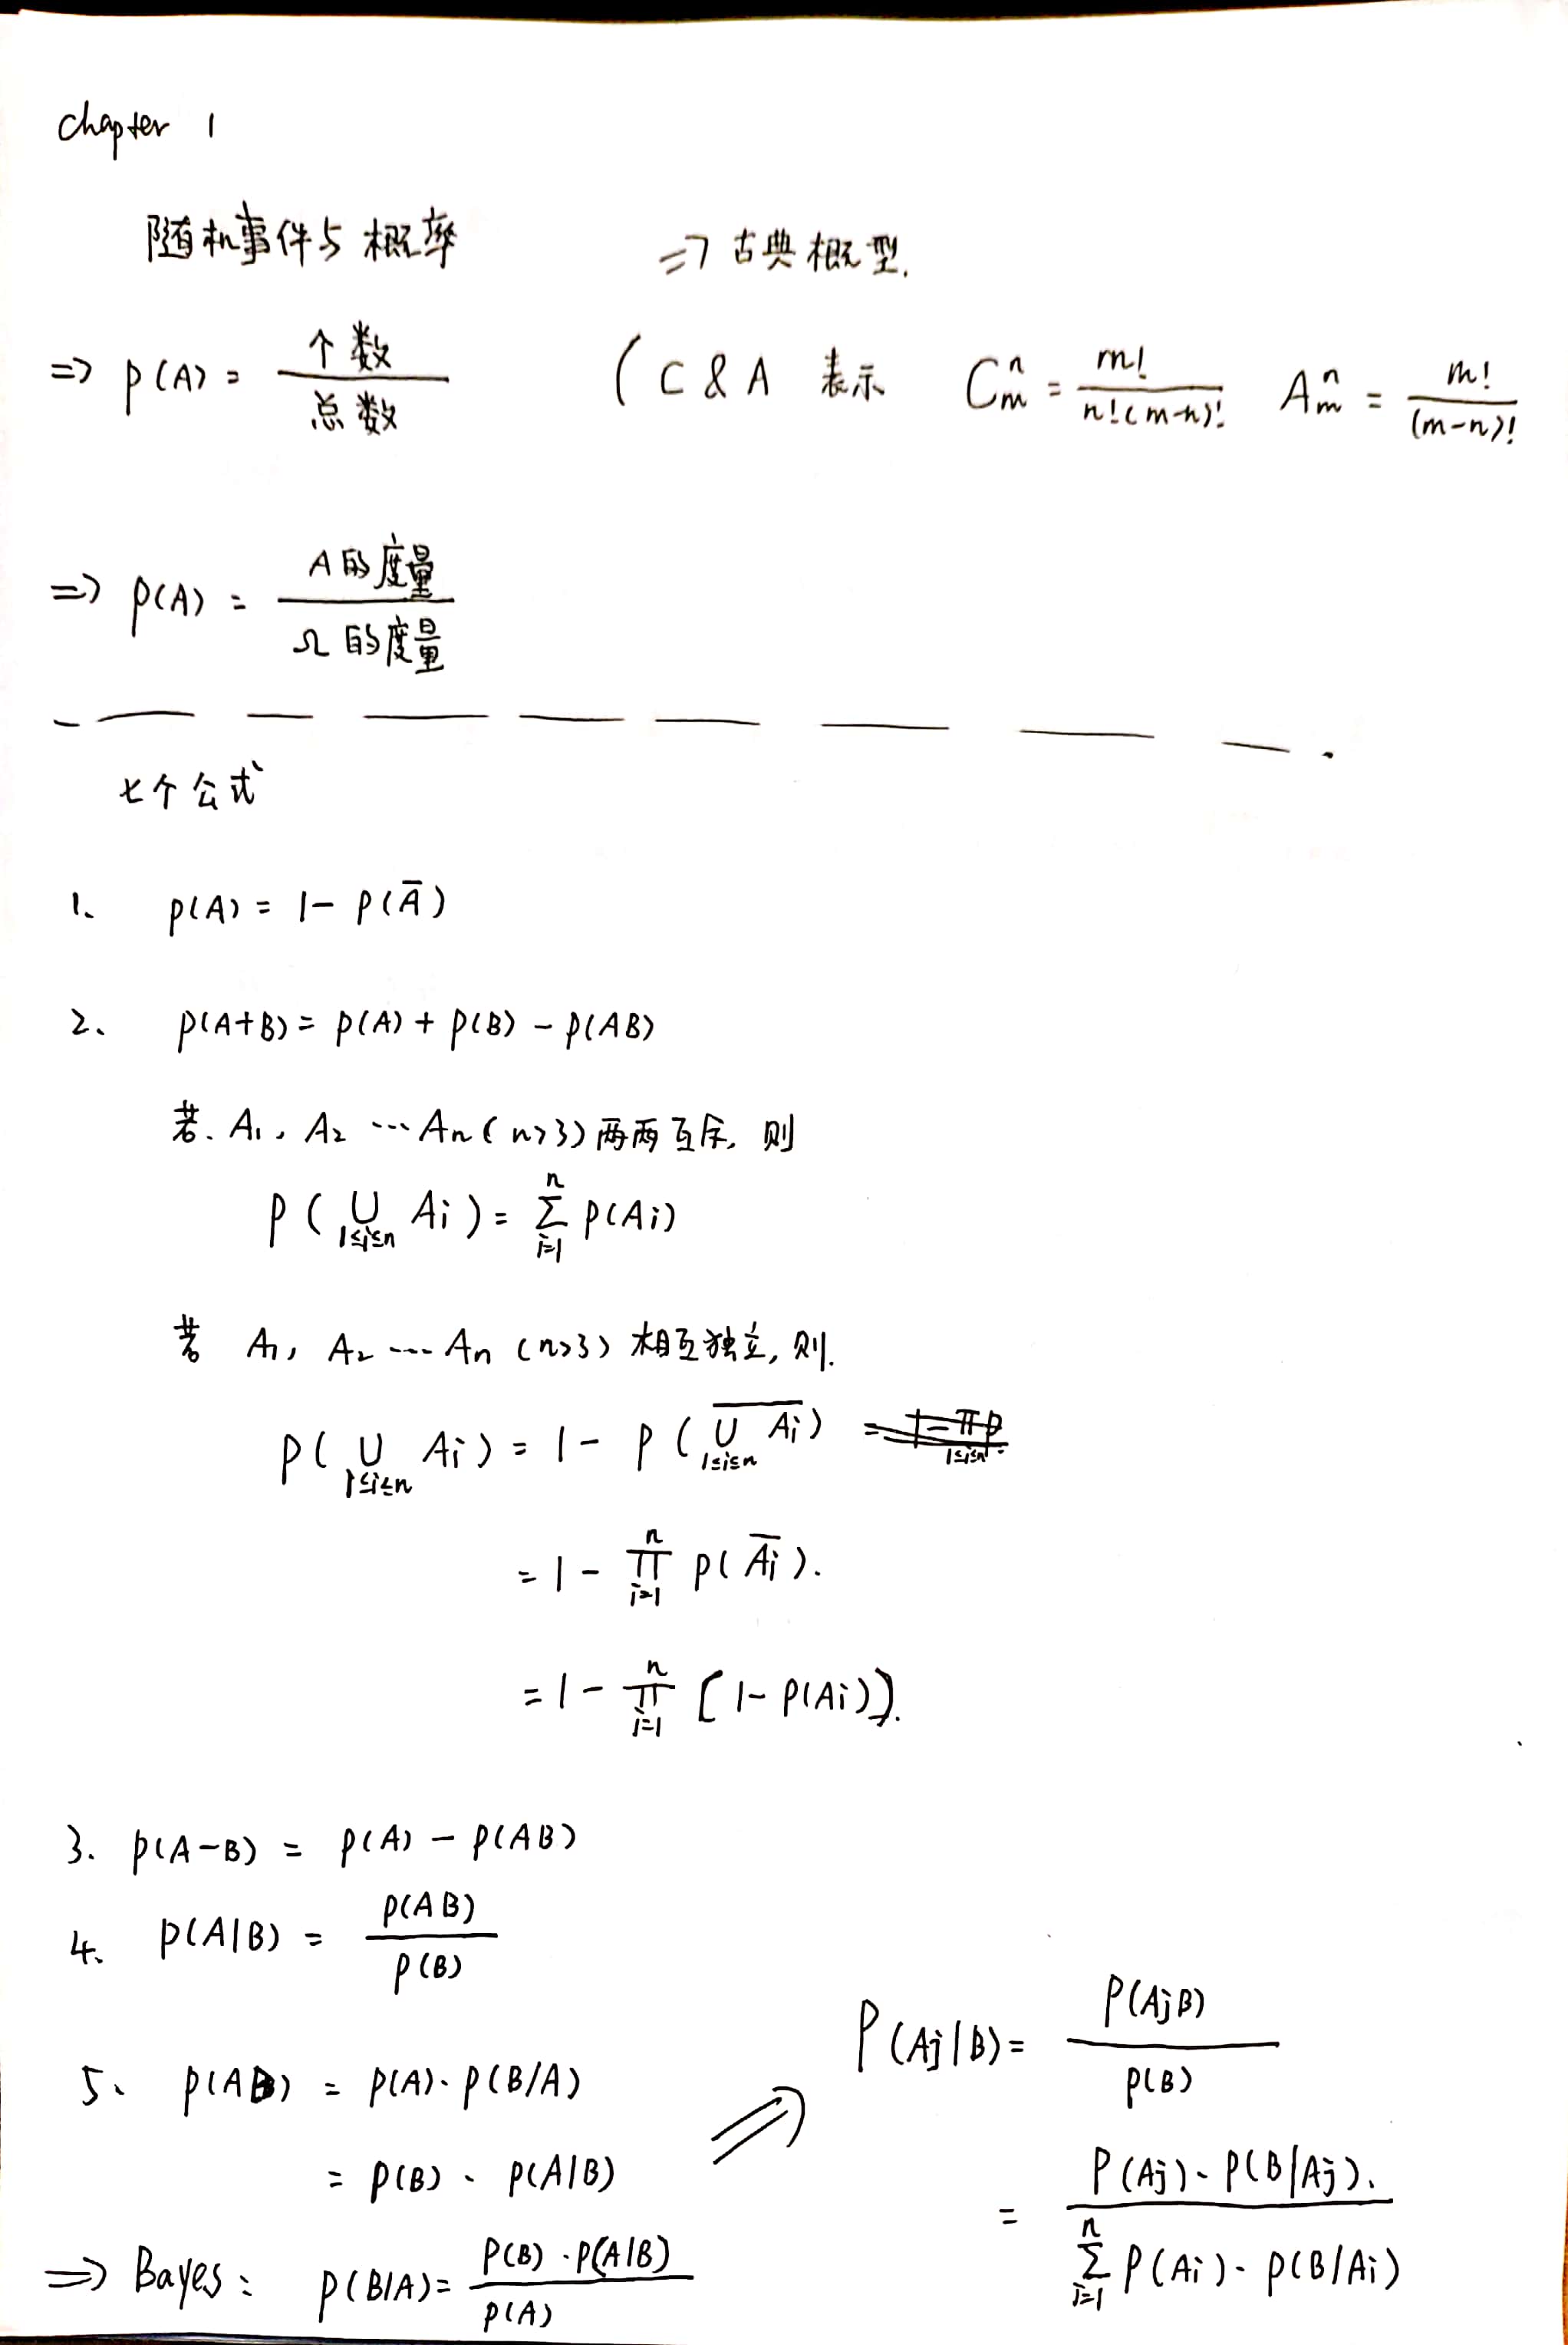 chapter 1
随机事件与概率 => 古典概型.
=> P(A) = 个数/总数 ( C & A 表示 C_m^n = m!/(n!(m-n)!) A_m^n = m!/(m-n)!
=> P(A) = A的度量/Ω的度量
七个公式
1、 P(A) = 1 - P(Ā)
2、 P(A+B) = P(A) + P(B) - P(AB)
若、A₁, A₂ ⋯ Aₙ (n>3) 两两互斥, 则
P( ∪_{1≤i≤n} Ai ) = Σ_{i=1}^{n} P(Ai)
若 A₁, A₂ ⋯ Aₙ (n>3) 相互独立, 则.
P( ∪_{1≤i≤n} Ai ) = 1 - P( \overline{∪_{1≤i≤n} Ai} )
= 1 - ∏_{i=1}^{n} P( \overline{Ai} ).
= 1 - ∏_{i=1}^{n} [1 - P(Ai)].
3. P(A-B) = P(A) - P(AB)
4、 P(A|B) = P(AB)/P(B)
5、 P(AB) = P(A)·P(B/A)
= P(B)·P(A|B)
=> Bayes: P(B/A) = P(B)·P(A|B)/P(A)
=> P(Aj|B) = P(AjB)/P(B)
= P(Aj)·P(B|Aj)./Σ_{i=1}^{n} P(Ai)·P(B/Ai)